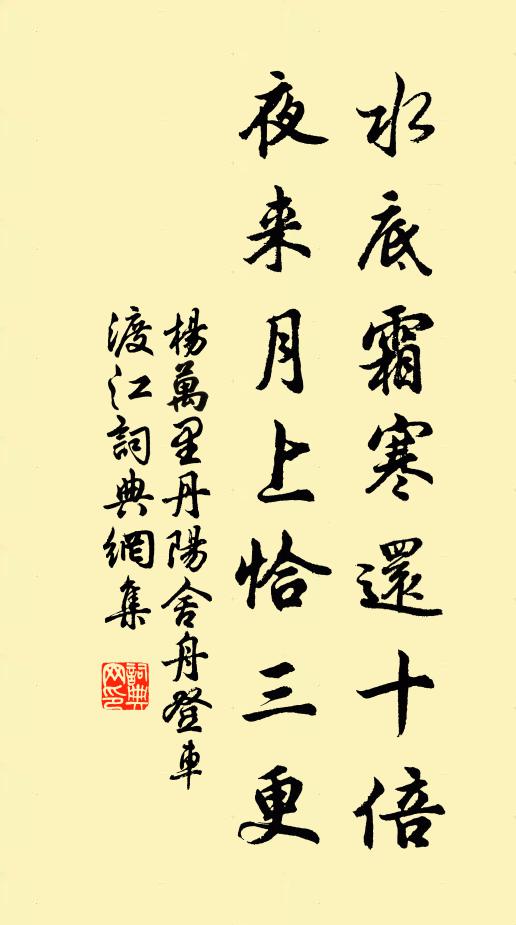 水底霜寒還十倍
夜来月上恰三更
楊萬里丹陽舍舟登車
渡江詞典網集
詞典网印